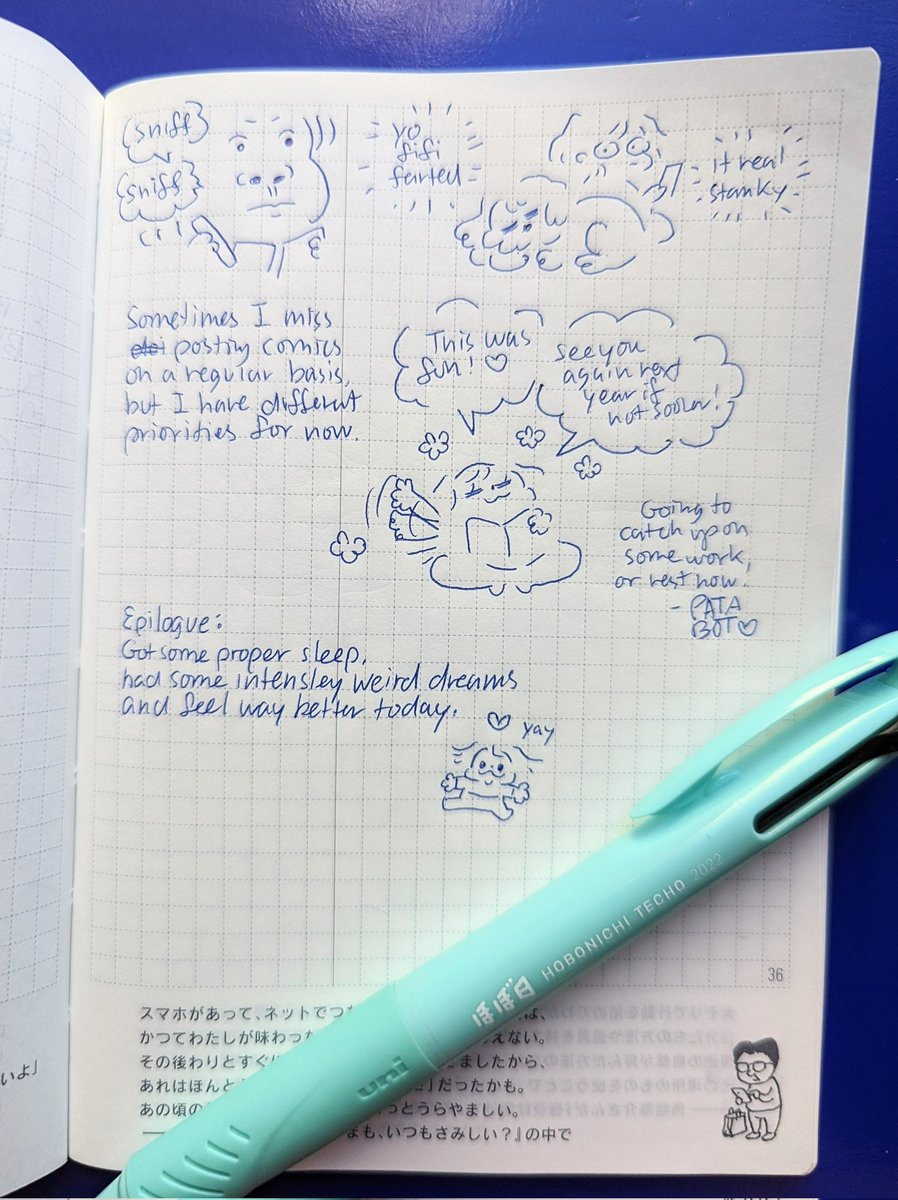 {sniff}
{sniff}
yo
fifi
farted
it real
stanky
Sometimes I miss
posting comics
on a regular basis,
but I have different
priorities for now.
This was
fun! ♡
see you
again next
year if
not sooner!
Going to
catch up on
some work,
or rest now.
- PATA
BOT ♡
Epilogue:
Got some proper sleep,
had some intensley weird dreams
and feel way better today.
♡ yay
36
ほぼ日 HOBONICHI TECHO 2022
uni
スマホがあって、ネットでつ は、
かつてわたしが味わっ えない。
その後わりとすぐ ましたから、
あれはほんと 」だったかも。
あの頃の っとうらやましい。
も、いつもさみしい?』の中で
いよ」